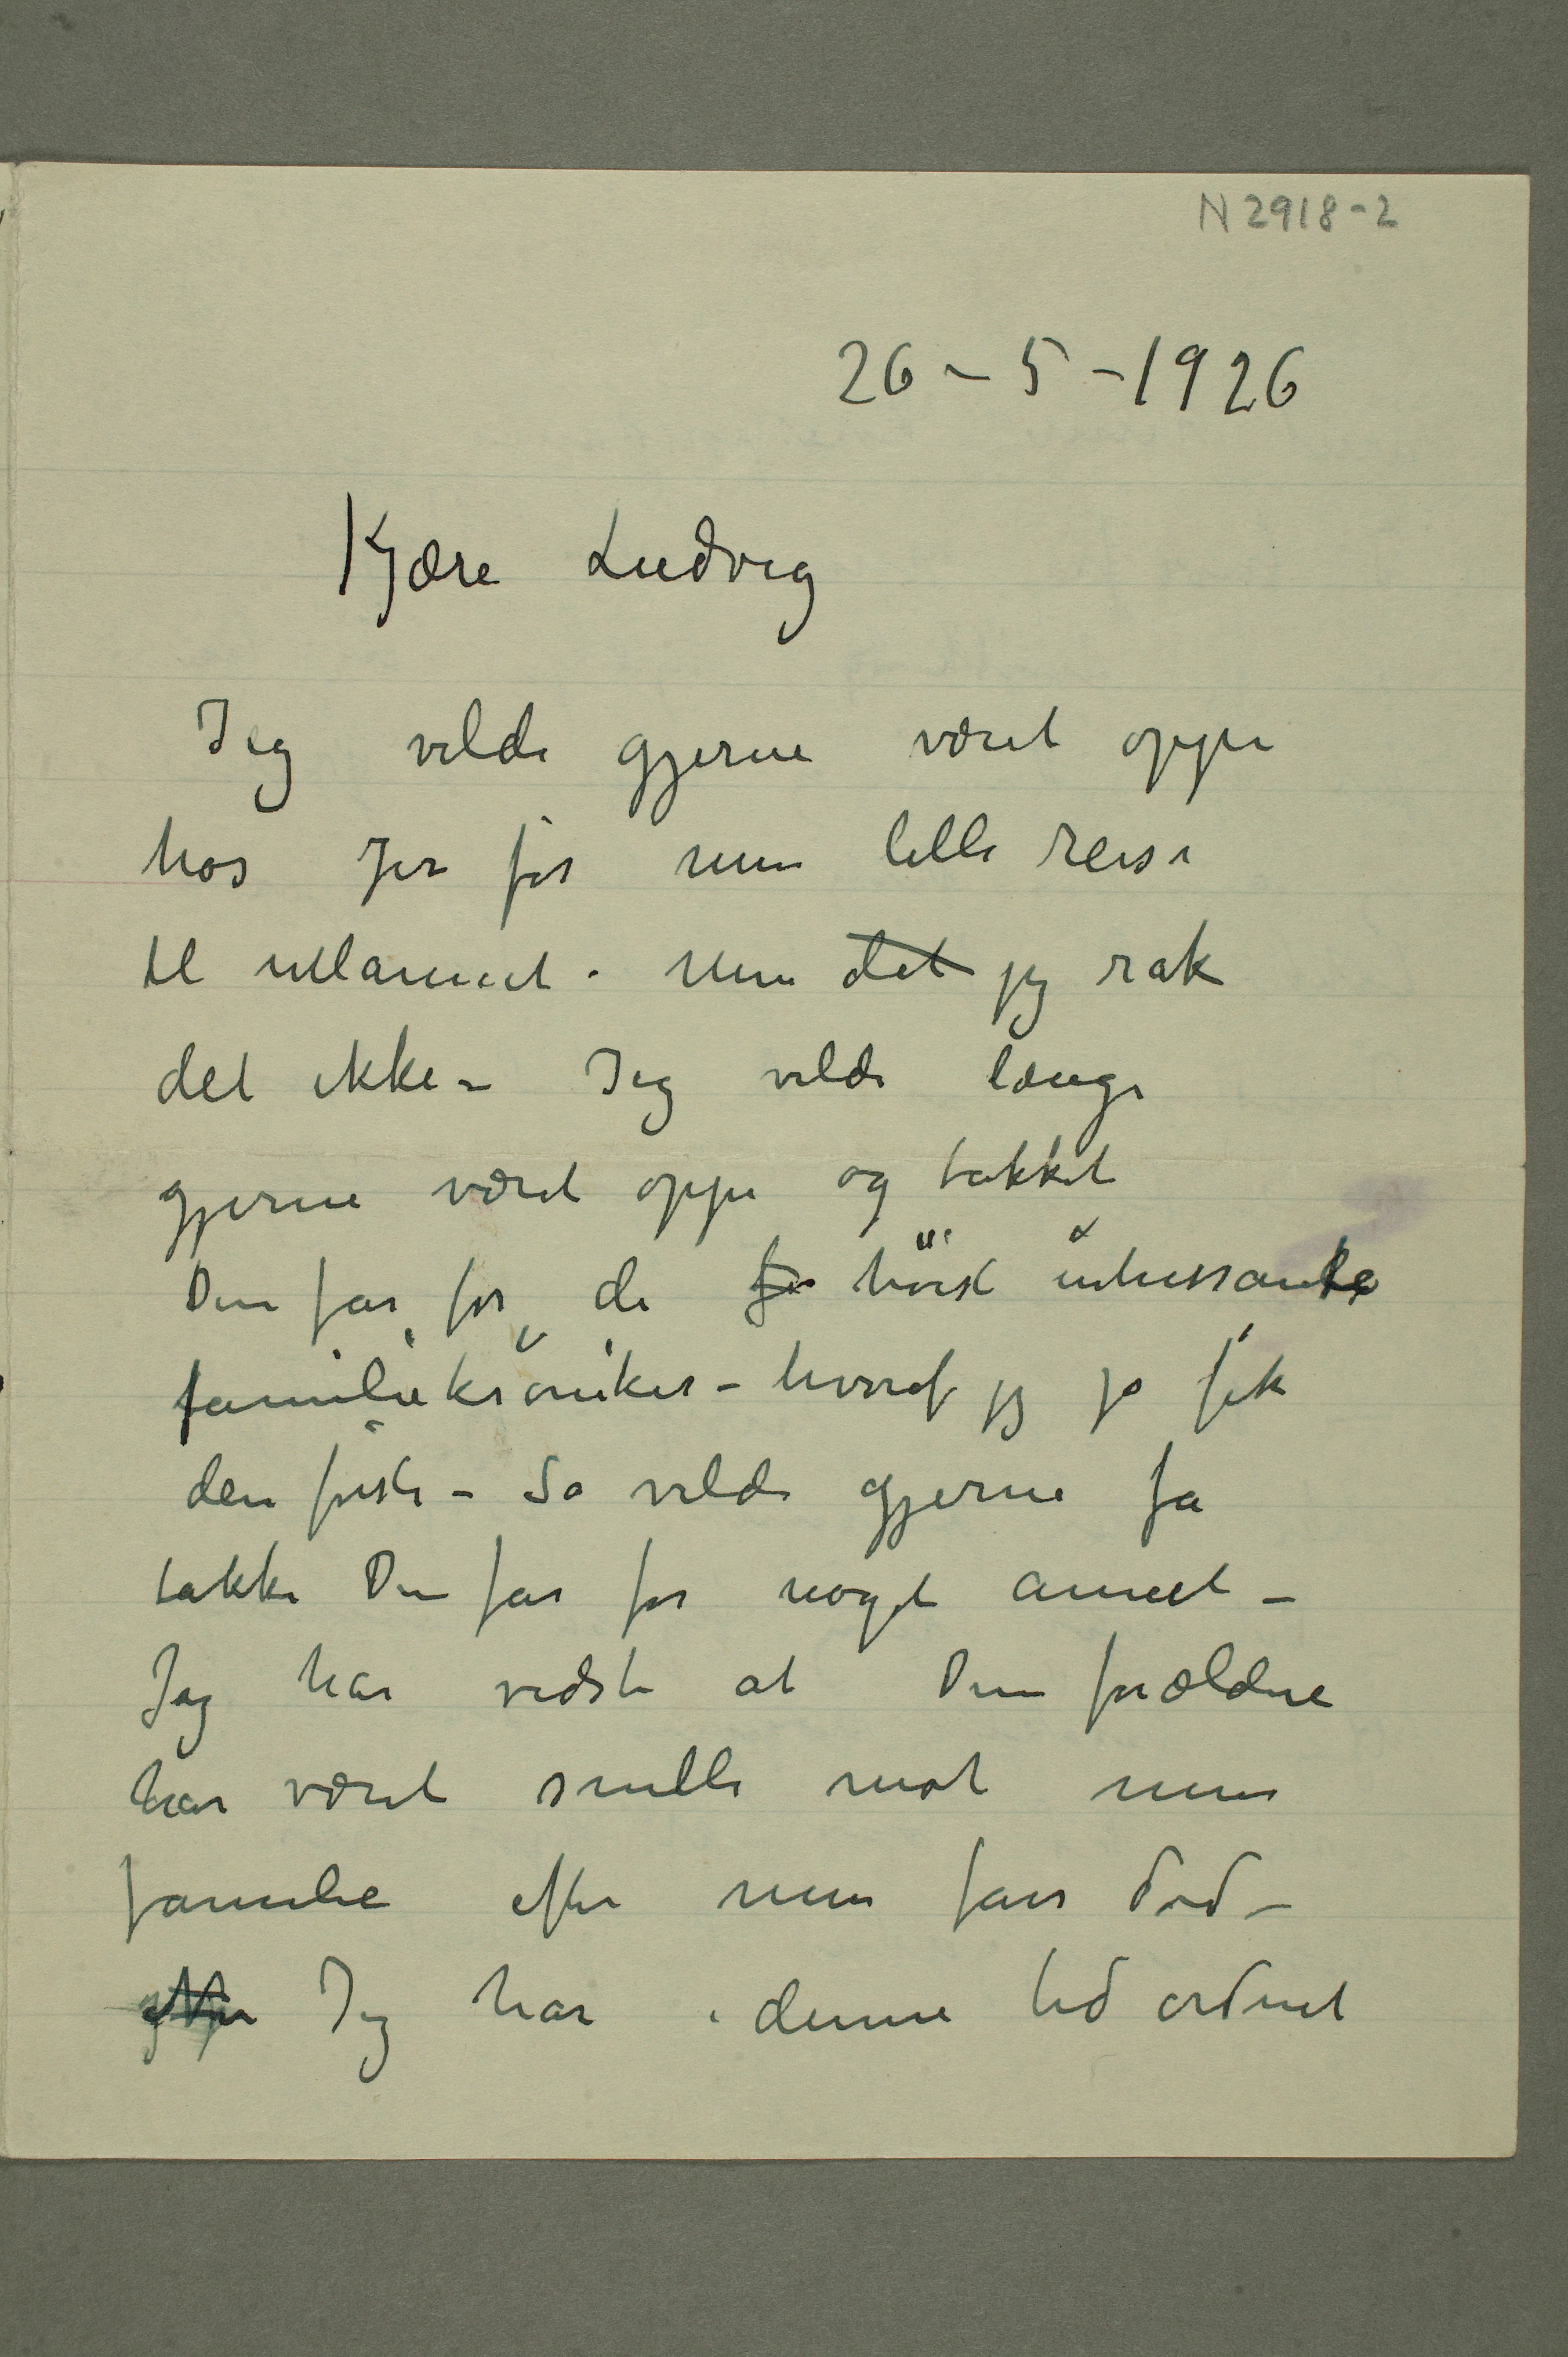 N 2918-2
26-5-1926
Kjære Ludvig
Jeg vilde gjerne været oppe
hos Jer før min lille reise
til utlannet. Men det jeg rak
det ikke – Jeg vilde længe
gjerne været oppe og takket
Din far for de høist interessante
familiekrøniker – hvoraf jeg jo fik
den første – Så vilde gjerne få
takke Din far for noget annet –
Jeg har vidst at Dine forældre
har været snille mot min
familie efter min fars død –
Jeg har i denne tid ordnet